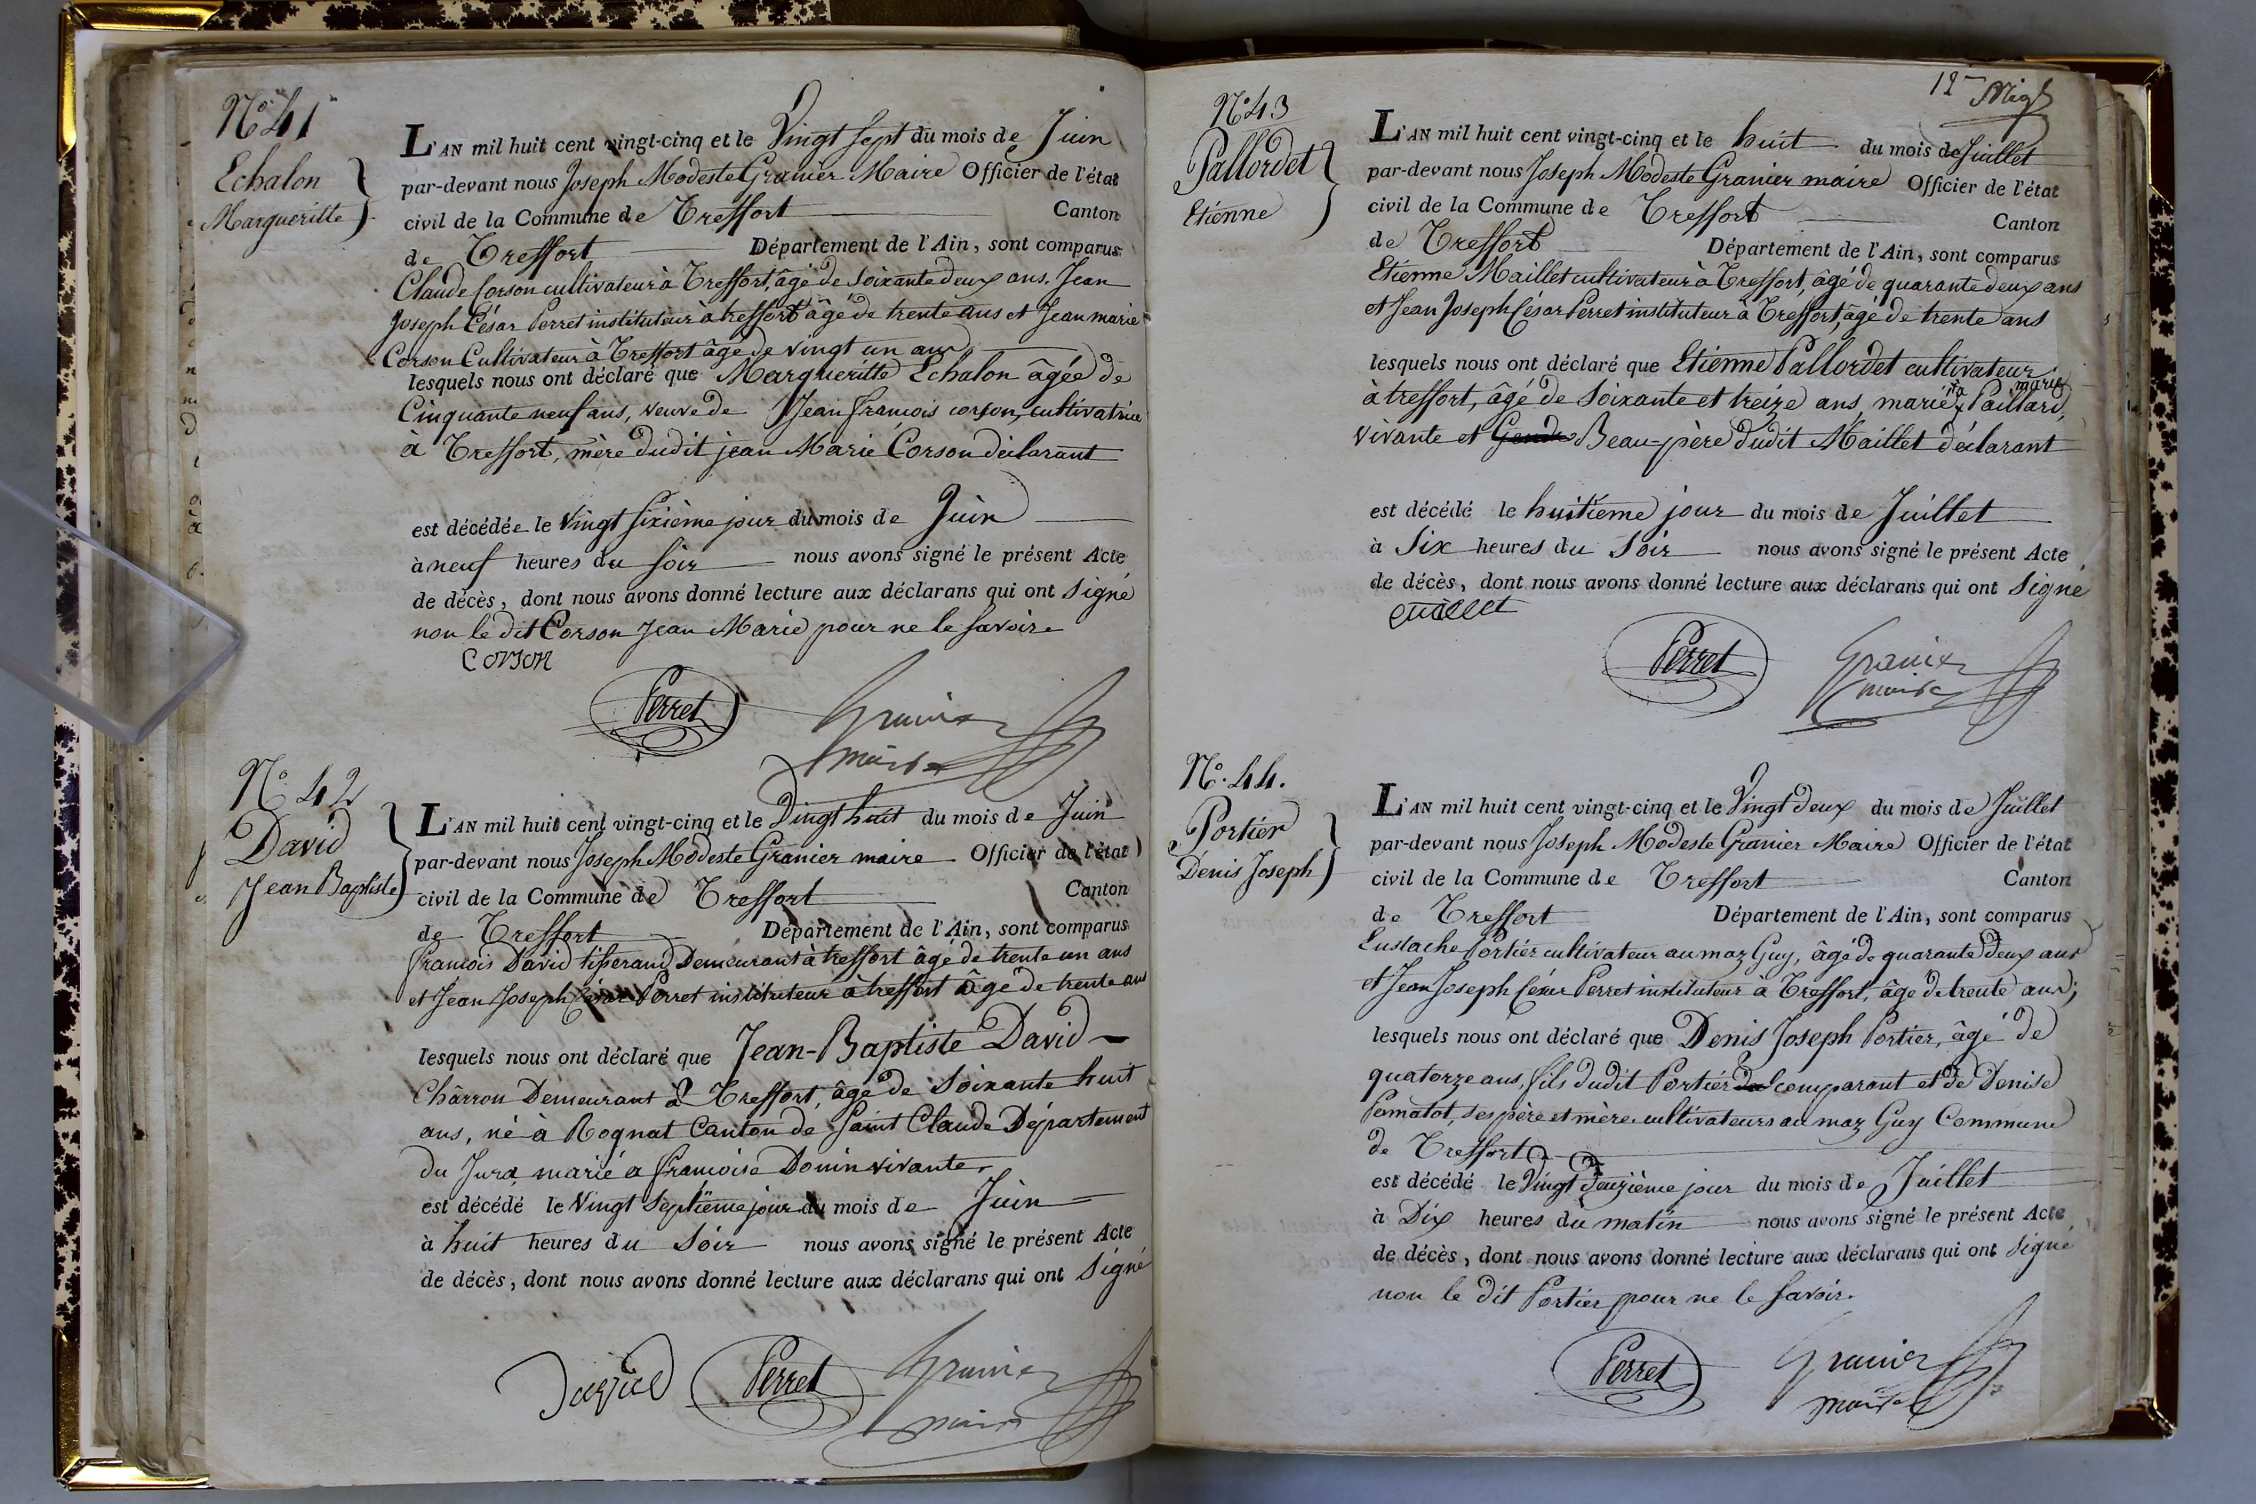 N° 41
Echalon
Margueritte
L'AN mil huit cent vingt-cinq et le Vingt sept du mois de Juin
par-devant nous Joseph Modeste Granier Maire Officier de l'état
civil de la Commune de Treffort Canton
de Treffort Département de l'Ain, sont comparus
Claude Corson cultivateur à Treffort, âgé de soixante deux ans. Jean
Joseph César Perret instituteur à treffort âgé de trente ans et Jean marie
Corson Cultivateur à Treffort âgé de vingt un ans
lesquels nous ont déclaré que Margueritte Echalon âgée de
Cinquante neuf ans, veuve de Jean françois corson, cultivatrice
à Treffort, mère dudit jean Marie Corson déclarant
est décédée le Vingt sixième jour du mois de Juin
à neuf heures du soir nous avons signé le présent Acte
de décès, dont nous avons donné lecture aux déclarans qui ont signé
non le dit Corson Jean Marie pour ne le savoir
Corson
Perret
Granier
maire
N° 42
David
Jean Baptiste
L'AN mil huit cent vingt-cinq et le Vingt huit du mois de Juin
par-devant nous Joseph Modeste Granier maire Officier de l'état
civil de la Commune de Treffort Canton
de Treffort Département de l'Ain, sont comparus
françois David tisserand Demeurant à treffort âgé de trente un ans
et Jean Joseph César Perret instituteur à treffort âgé de trente ans
lesquels nous ont déclaré que Jean-Baptiste David
Chârron Demeurant à Treffort, âgé de soixante huit
ans, né à Rognat Canton de Saint Claude Département
du Jura, marié a françoise Donin vivante.
est décédé le Vingt septième jour du mois de Juin
à huit heures du soir nous avons signé le présent Acte
de décès, dont nous avons donné lecture aux déclarans qui ont signé
David
Perret
Granier
maire
12
N° 43
Pallordet
Etienne
L'AN mil huit cent vingt-cinq et le huit du mois de Juillet
par-devant nous Joseph Modeste Granier maire Officier de l'état
civil de la Commune de Treffort Canton
de Treffort Département de l'Ain, sont comparus
Etienne Maillet cultivateur à Treffort, âgé de quarante deux ans
et Jean Joseph César Perret instituteur à Treffort, âgé de trente ans
lesquels nous ont déclaré que Etienne Pallordet cultivateur
à treffort, âgé de soixante et treize ans, marié à marie Paillard,
vivante et Gendre Beau-père dudit Maillet déclarant
est décédé le huitième jour du mois de Juillet
à Six heures du soir nous avons signé le présent Acte
de décès, dont nous avons donné lecture aux déclarans qui ont signé
Perret
Granier
maire
N° 44.
Portier
Denis Joseph
L'AN mil huit cent vingt-cinq et le Vingt deux du mois de Juillet
par-devant nous Joseph Modeste Granier Maire Officier de l'état
civil de la Commune de Treffort Canton
de Treffort Département de l'Ain, sont comparus
Eustache Portier cultivateur au maz Guy, âgé de quarante deux ans
et Jean Joseph César Perret instituteur à Treffort, âgé de trente ans;
lesquels nous ont déclaré que Denis Joseph Portier, âgé de
quatorze ans, fils dudit Portier comparant et de Denise
Pomatot, ses père et mère cultivateurs au maz Guy Commune
de Treffort
est décédé le Vingt deuzième jour du mois de Juillet
à Dix heures du matin nous avons signé le présent Acte
de décès, dont nous avons donné lecture aux déclarans qui ont signé
non le dit Portier pour ne le savoir.
Perret
Granier
maire